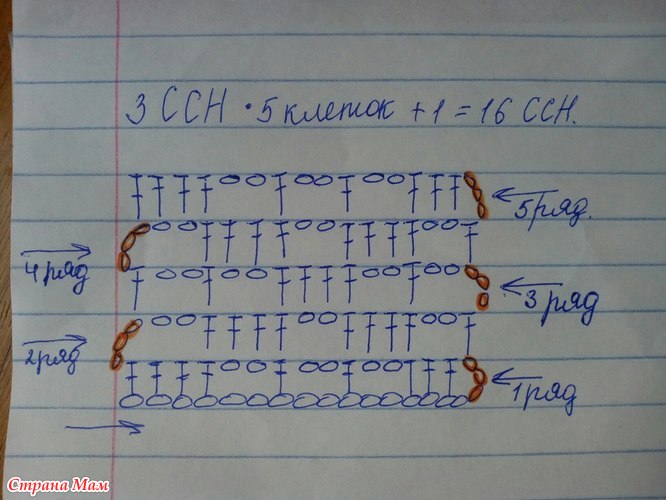 3 ССН · 5 клеток + 1 = 16 ССН.
5 ряд.
4 ряд
3 ряд
2 ряд
1 ряд
Страна Мам